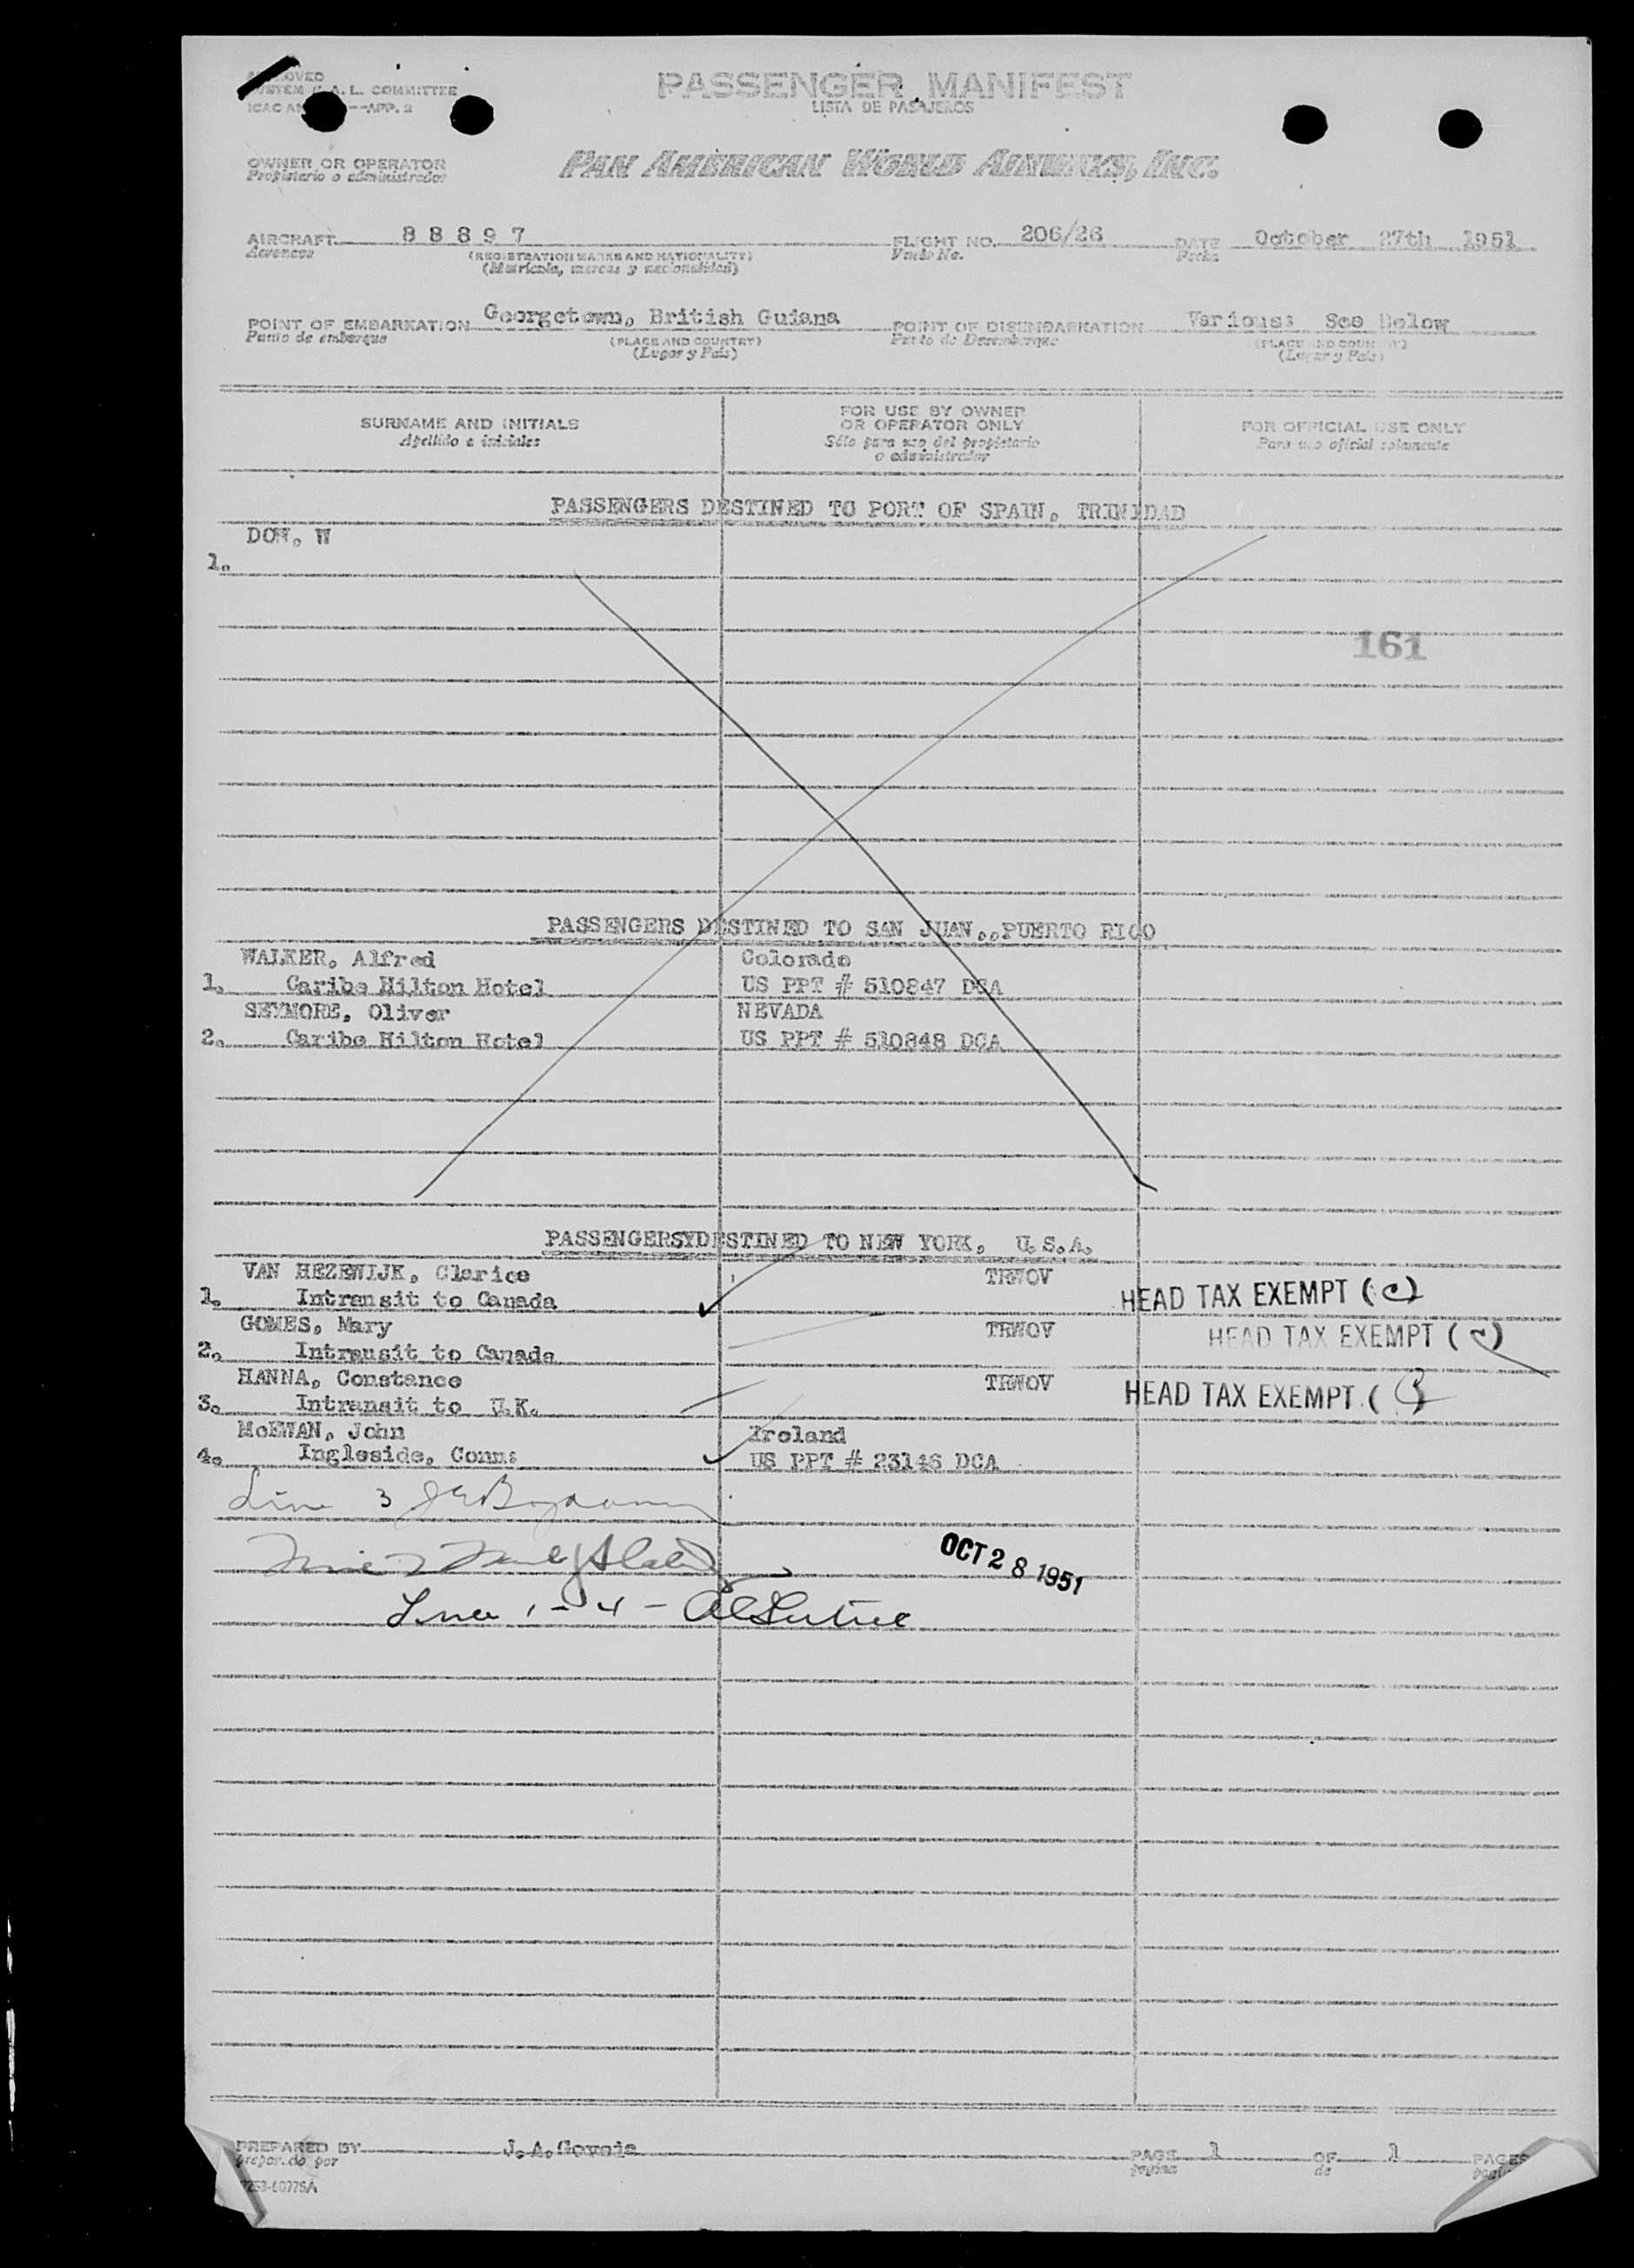 PASSENGER MANIFEST
LISTA DE PASAJEROS
L. COMMITTEE
APP. 2
OWNER OR OPERATOR
Propietario o administrador
PAN AMERICAN WORLD AIRWAYS, INC.
AIRCRAFT 88897 FLIGHT NO. 206/26 DATE October 27th 1951
Aeronave (REGISTRATION MARKS AND NATIONALITY) Vuelo No. Fecha
(Matrícula, marcas y nacionalidad)
POINT OF EMBARKATION Georgetown, British Guiana POINT OF DISEMBARKATION Various: See Below
Punto de embarque (PLACE AND COUNTRY) Punto de Desembarque (PLACE AND COUNTRY)
(Lugar y País) (Lugar y País)
SURNAME AND INITIALS FOR USE BY OWNER OR OPERATOR ONLY FOR OFFICIAL USE ONLY
Apellido e iniciales Sólo para uso del propietario o administrador Para uso oficial solamente
PASSENGERS DESTINED TO PORT OF SPAIN, TRINIDAD
DOW, W
1.
161
PASSENGERS DESTINED TO SAN JUAN.,PUERTO RICO
WALKER, Alfred Colorado
1. Caribe Hilton Hotel US PPT # 510847 DCA
SEYMORE, Oliver NEVADA
2. Caribe Hilton Hotel US PPT # 510848 DCA
PASSENGERSYDESTINED TO NEW YORK, U.S.A.
VAN HEZEWIJK, Clarice TRWOV
1. Intransit to Canada HEAD TAX EXEMPT (C)
GOMES, Mary TRWOV HEAD TAX EXEMPT (C)
2. Intransit to Canada
HANNA, Constance TRWOV HEAD TAX EXEMPT (
3. Intransit to U.K.
McEWAN, John Ireland
4. Ingleside, Conn: US PPT # 23146 DCA
Line 3
OCT 28 1951
Line 1-4 -
PREPARED BY PAGE 1 OF 1 PAGES
preparado por página de